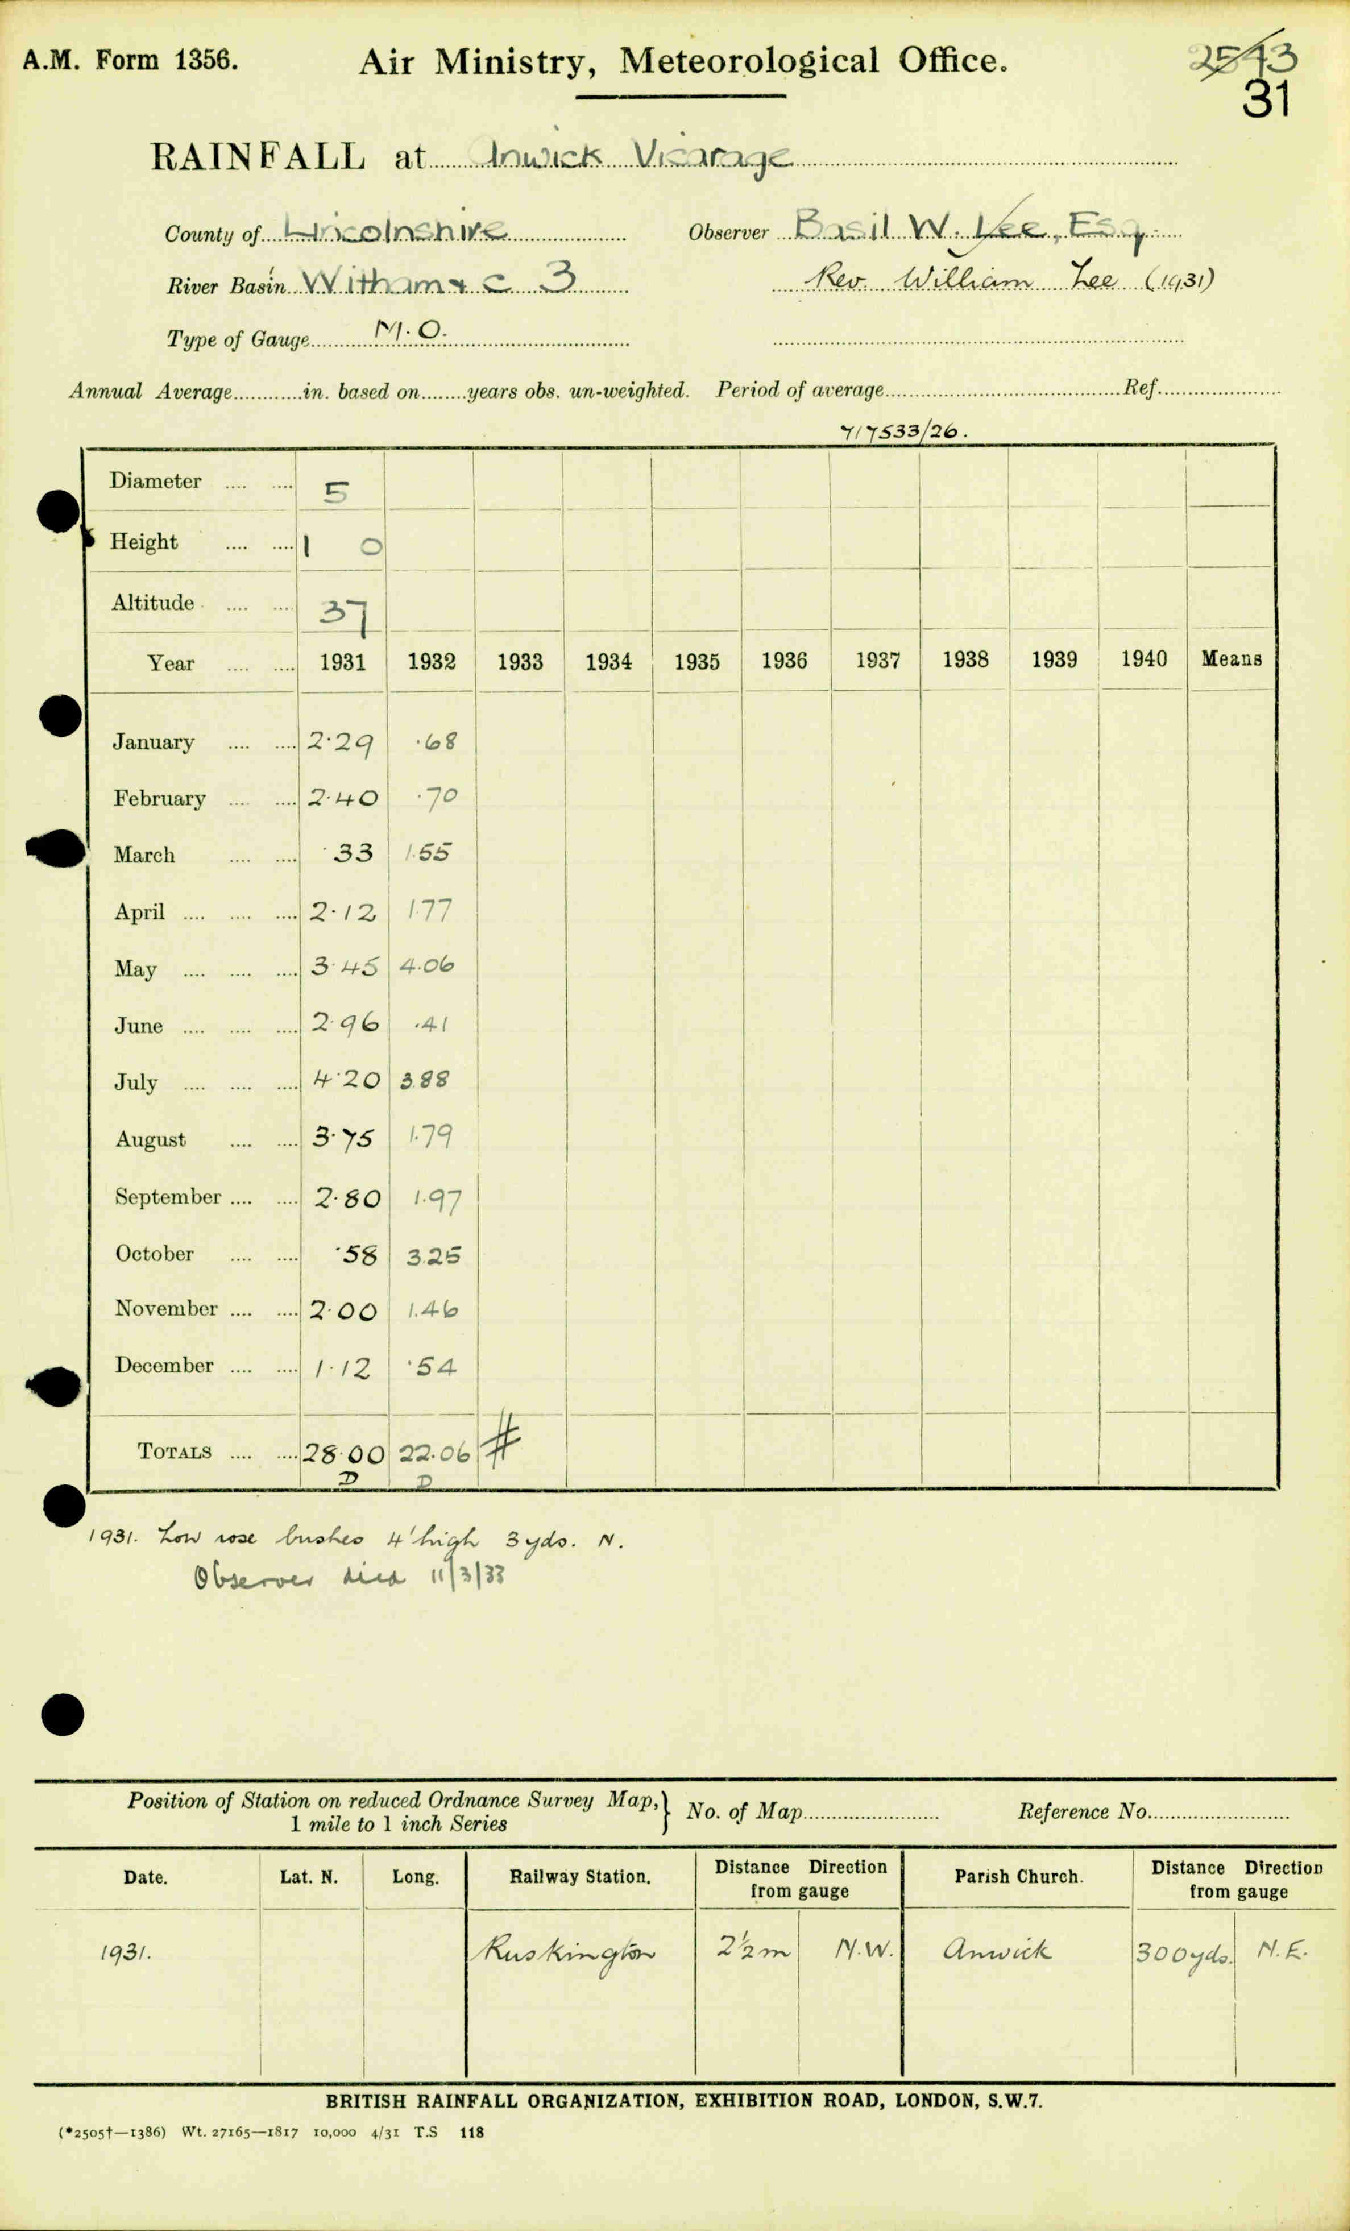 A.M. Form 1356.
Air Ministry, Meteorological Office.
2543
31
RAINFALL at Anwick Vicarage
County of Lincolnshire Observer Basil W. Lee, Esq.
River Basin Witham & C 3 Rev. William Lee (1931)
Type of Gauge M.O.
Annual Average in. based on years obs. un-weighted. Period of average Ref.
717533/26.
Diameter 5
Height 1 0
Altitude 37
Year 1931 1932 1933 1934 1935 1936 1937 1938 1939 1940 Means
January 2.29 .68
February 2.40 .70
March .33 1.55
April 2.12 1.77
May 3.45 4.06
June 2.96 .41
July 4.20 3.88
August 3.75 1.79
September 2.80 1.97
October .58 3.25
November 2.00 1.46
December 1.12 .54
TOTALS 28.00 22.06 #
D D
1931. Low rose bushes 4' high 3 yds. N.
Observer died 11/3/33
Position of Station on reduced Ordnance Survey Map,} No. of Map Reference No.
1 mile to 1 inch Series
Date. Lat. N. Long. Railway Station. Distance Direction from gauge Parish Church. Distance Direction from gauge
1931. Ruskington 2½m N.W. Anwick 300yds. N.E.
BRITISH RAINFALL ORGANIZATION, EXHIBITION ROAD, LONDON, S.W.7.
(*2505†—1386) Wt. 27165—1817 10,000 4/31 T.S 118